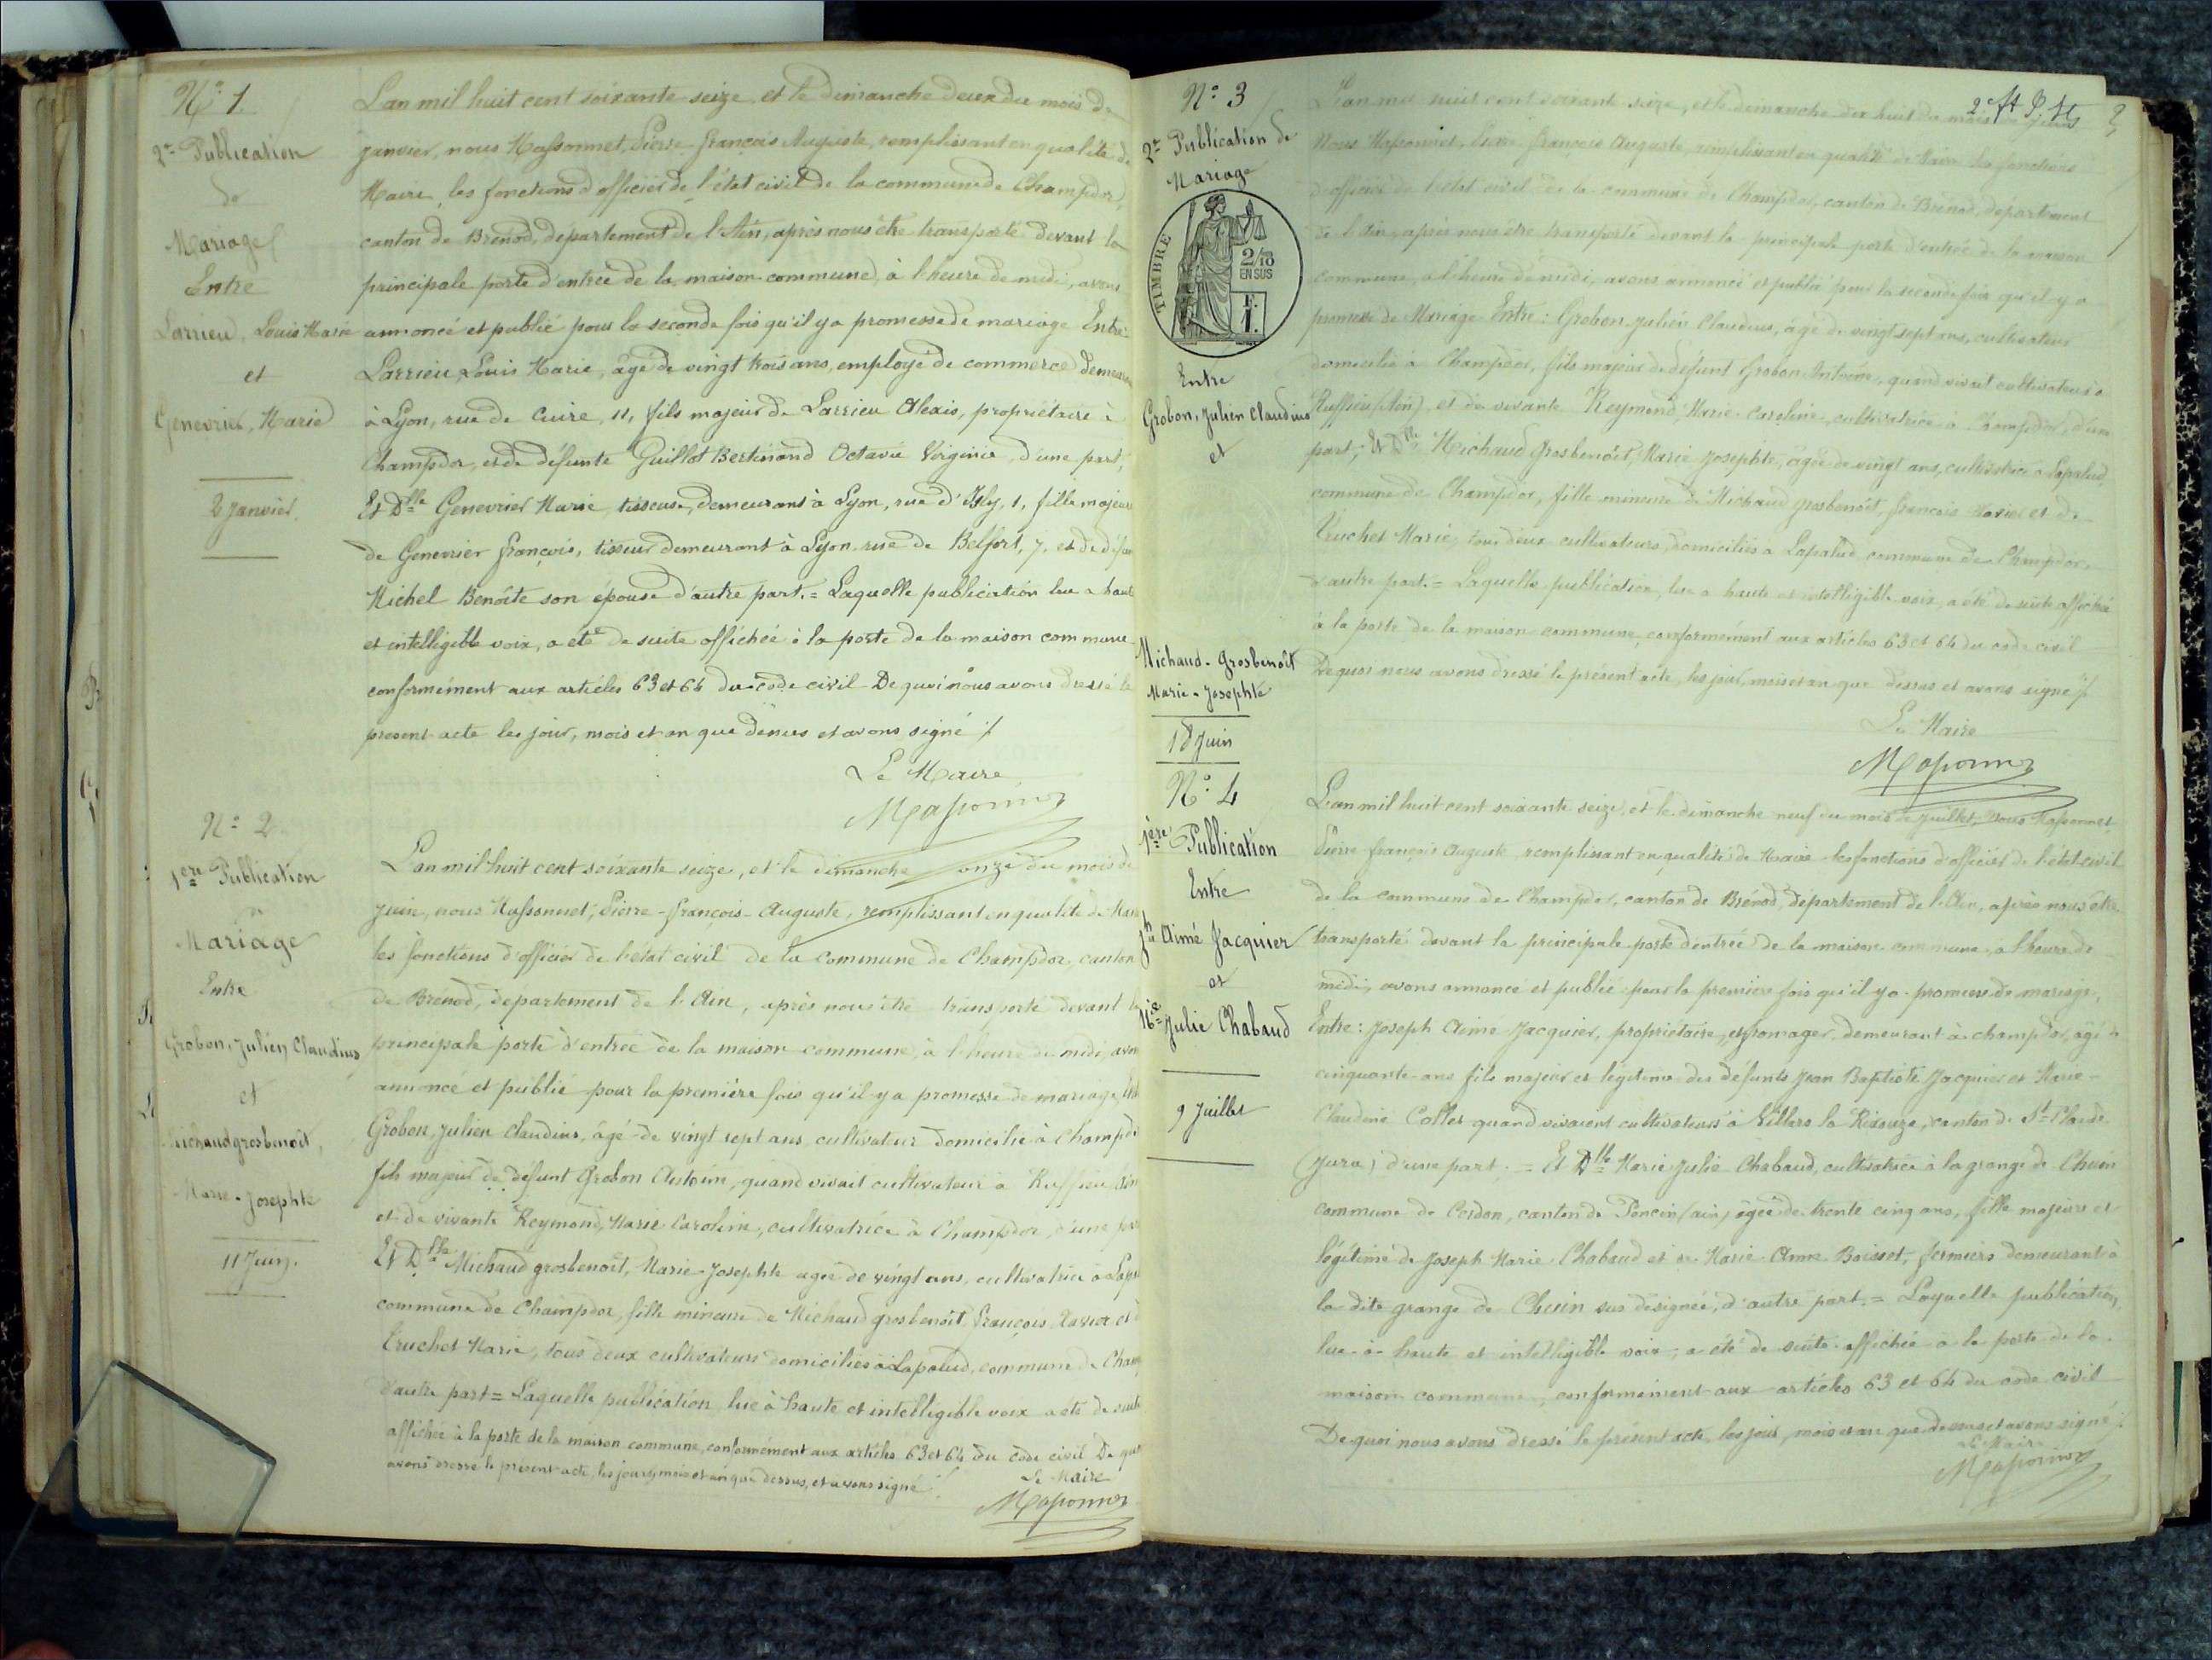 N° 1.
2e Publication
de
Mariage
Entre
Larrieu, Louis Marie
et
Genevrier, Marie
2 Janvier.
L'an mil huit cent soixante seize et le dimanche deux du mois de
janvier, nous Massonnet, Pierre François Auguste, remplissant en qualité de
Maire, les fonctions d'officier de l'état civil de la commune de Champdor,
canton de Brénod, département de l'Ain, après nous être transporté devant la
principale porte d'entrée de la maison commune, à l'heure de midi, avons
annoncé et publié pour la seconde fois qu'il y a promesse de mariage Entre
Larrieu, Louis Marie, âgé de vingt trois ans, employé de commerce demeurant
à Lyon, rue de Cuire, 11, fils majeur de Larrieu Alexis, propriétaire à
Champdor, et de défunte Guillot Bertinand Octavie Virginie, d'une part,
Et Dlle Genevrier Marie, tisseuse, demeurant à Lyon, rue d'Isly, 1, fille majeure
de Genevrier François, tisseur demeurant à Lyon, rue de Belfort, 7, et de défun
Michel Benoîte son épouse d'autre part. = Laquelle publication lue a haut
et intelligible voix, a été de suite affichée à la porte de la maison commune
conformément aux articles 63 et 64 du code civil De quoi nous avons dressé le
present acte les jour, mois et an que dessus et avons signé ./.
Le Maire
Massonnet
N° 2
1ere Publication
Mariage
Entre
Grobon, Julien Claudius
et
Michaud grosbenoît,
Marie-Josephte
11 Juin.
L'an mil huit cent soixante seize, et le dimanche onze du mois de
juin, nous Massonnet, Pierre-François-Auguste, remplissant en qualité de Maire
les fonctions d'officier de l'état civil de la commune de Champdor, canton
de Brénod, département de l'Ain, après nous être transporté devant la
principale porte d'entrée de la maison commune, à l'heure de midi, avon
annoncé et publié pour la première fois qu'il y a promesse de mariage, Ent
Grobon, Julien Claudius, âgé de vingt sept ans cultivateur domicilié à Champdo
fils majeur de défunt Grobon Antoine, quand vivait cultivateur à Ruffieu (Ain
et de vivante Reymond, Marie Caroline, cultivatrice à Champdor, d'une part
Et Dlle Michaud grosbenoît, Marie-Josephte agée de vingt ans, cultivatrice à Lapal
commune de Champdor, fille mineure de Michaud grosbenoît, François Xavier et d
Cruchet Marie, tous deux cultivateurs domiciliés à Lapalud, commune de Cham
d'autre part = Laquelle publication lue à haute et intelligible voix a été de suite
affichée à la porte de la maison commune, conformément aux articles 63 et 64 du code civil De quoi
avons dressé le présent acte, les jour, mois et an que dessus, et avons signé ./.
Le Maire
Massonnet
N° 3
2e Publication de
Mariage
TIMBRE
2/10
EN SUS
F.
1.
Entre
Grobon, Julien Claudius
et
Michaud-Grosbenoît
Marie-Josephte
18 Juin
L'an mil huit cent soixante seize, et le dimanche dix huit du mois de Juin
Nous Massonnet, Pierre François Auguste, remplissant en qualité de Maire les fonctions
d'officier de l'état civil de la commune de Champdor, canton de Brénod, département
de l'Ain, après nous être transporté devant la principale porte d'entrée de la maison
commune, à l'heure de midi, avons annoncé et publié pour la seconde fois qu'il y a
promesse de Mariage Entre: Grobon Julien Claudius, âgé de vingt sept ans, cultivateur
domicilié à Champdor, fils majeur de défunt Grobon Antoine, quand vivait cultivateur à
Ruffieu (Ain) et de vivante Reymond, Marie-Caroline, cultivatrice à Champdor, d'une
part; Et Dlle Michaud Grosbenoît, Marie Josephte, âgée de vingt ans, cultivatrice à Lapalud,
commune de Champdor, fille mineure de Michaud grosbenoît, François Xavier et de
Cruchet Marie, tous deux cultivateurs domiciliés à Lapalud commune de Champdor
d'autre part. = Laquelle publication, lue a haute et intelligible voix, a été de suite affichée
à la porte de la maison commune, conformément aux articles 63 et 64 du code civil
De quoi nous avons dressé le présent acte, les jour, mois et an que dessus et avons signé ./.
Le Maire
Massonnet
N° 4
1ère Publication
Entre
Jh Aimé Jacquier
et
Mie Julie Chabaud
9 Juillet
L'an mil huit cent soixante seize, et le dimanche neuf du mois de Juillet, Nous Massonnet
Pierre François Auguste remplissant en qualité de Maire les fonctions d'officier de l'état civil
de la commune de Champdor, canton de Brénod, département de l'Ain, après nous être
transporté devant la principale porte d'entrée de la maison commune, a l'heure de
midi, avons annoncé et publié pour la première fois qu'il y a promesse de mariage,
Entre: Joseph Aimé Jacquier, propriétaire, et fromager demeurant à champdor, agé de
cinquante ans fils majeur et légitime des défunts Jean Baptiste Jacquier et Marie
Claudine Collet quand vivaient cultivateurs à Villars la Rixouze, canton de St Claude
(Jura) d'une part. = Et Dlle Marie Julie Chabaud, cultivatrice à la grange de Chuin
commune de Cerdon, canton de Poncin (ain) agée de trente cinq ans, fille majeure et
légitime de Joseph Marie Chabaud et de Marie Anne Boisset, fermiers demeurant à
la dite grange de Chuin sus designée, d'autre part. = Laquelle publication,
lue à haute et intelligible voix, a été de suite affichée a la porte de la
maison commune, conformément aux articles 63 et 64 du code civil
De quoi nous avons dressé le présent acte, les jour, mois et an que dessus et avons signé ./.
Le Maire
Massonnet